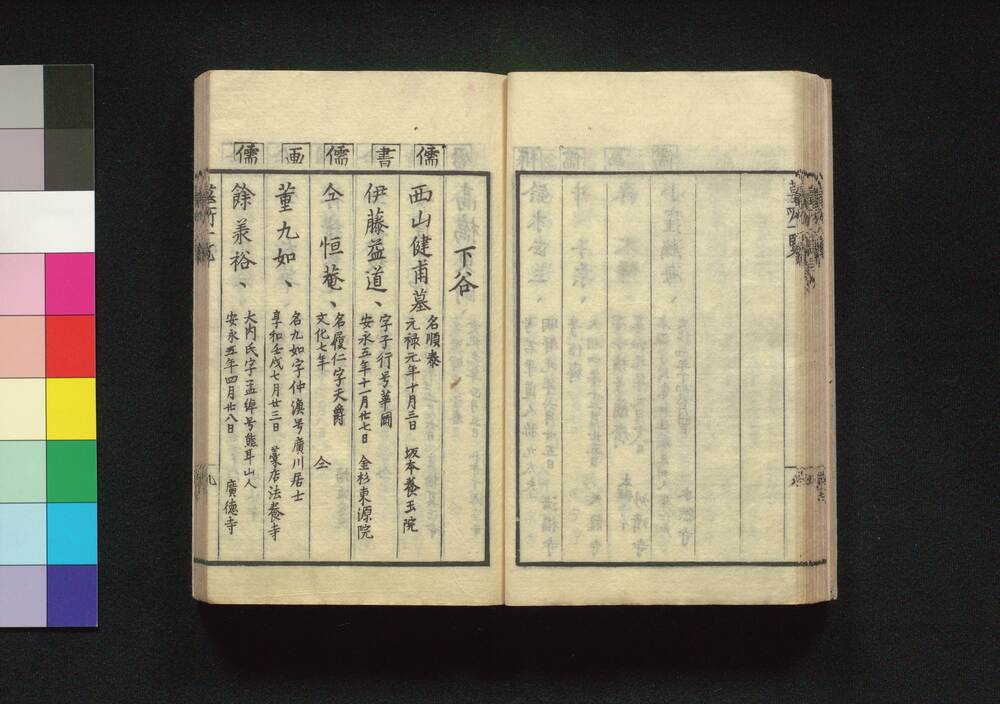 下谷
儒
西山健甫墓
名順泰
元禄元年十月三日 坂本養玉院
書
伊藤益道、
字子行号華岡
安永五年十一月廿七日 金杉東源院
儒
仝恒菴、
名履仁字天爵
文化七年 仝
画
董九如、
名九如字仲漁号廣川居士
享和壬戌七月廿三日 藁店法養寺
儒
餘養裕、
大内氏字孟綽号熊耳山人
安永五年四月廿八日 廣徳寺
墓所一覧
九